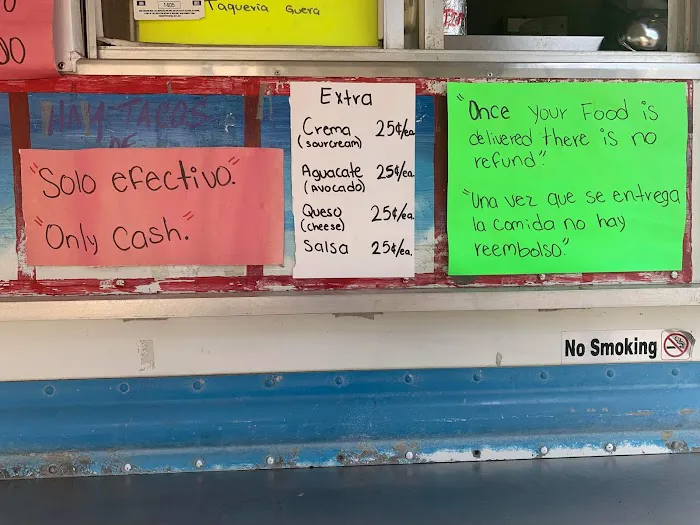 1405
Taqueria Guera
HAY TACOS
DE
"Solo efectivo."
"Only Cash."
Extra
Crema 25¢/ea.
(sourcream)
Aguacate 25¢/ea.
(Avocado)
Queso 25¢/ea.
(cheese)
Salsa 25¢/ea.
"Once your Food is
delivered there is no
refund".
"Una vez que se entrega
la comida no hay
reembolso."
No Smoking